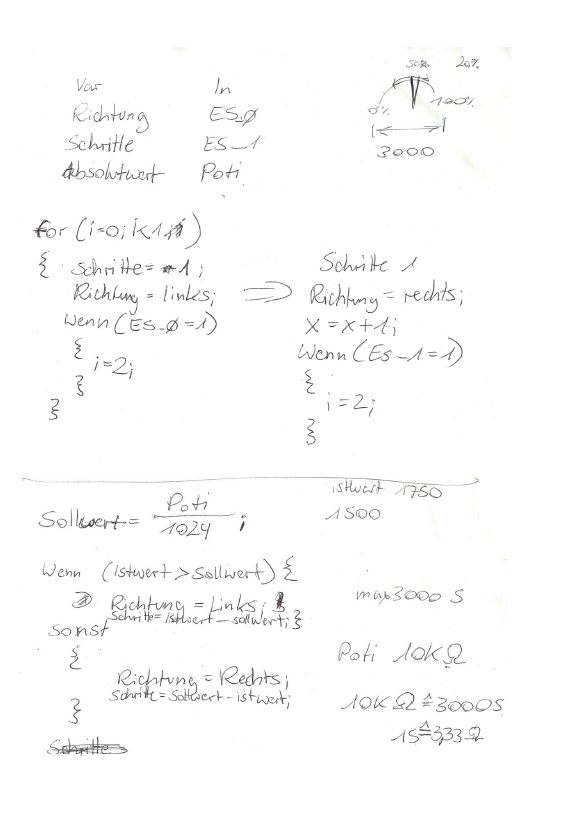 Var In
Richtung ES_0
Schritte ES_1
Absolutwert Poti
50% 20%
0% 100%
3000
for (i=0; i<1;)
{ Schritte= 1;
Richtung = links;
Wenn (ES_0=1)
{
i=2;
}
}
⇒
Schritte 1
Richtung = rechts;
X = X+1;
Wenn (ES_1=1)
{
i=2;
}
Sollwert = Poti / 1024 ;
istwert 1750
1500
Wenn (Istwert > Sollwert) {
Richtung = Links;
Schritte = istwert - sollwert; }
sonst
{
Richtung = Rechts;
Schritte = Sollwert - istwert;
}
Schritte
max 3000 S
Poti 10KΩ
10KΩ ≙ 3000S
1S ≙ 3,33Ω